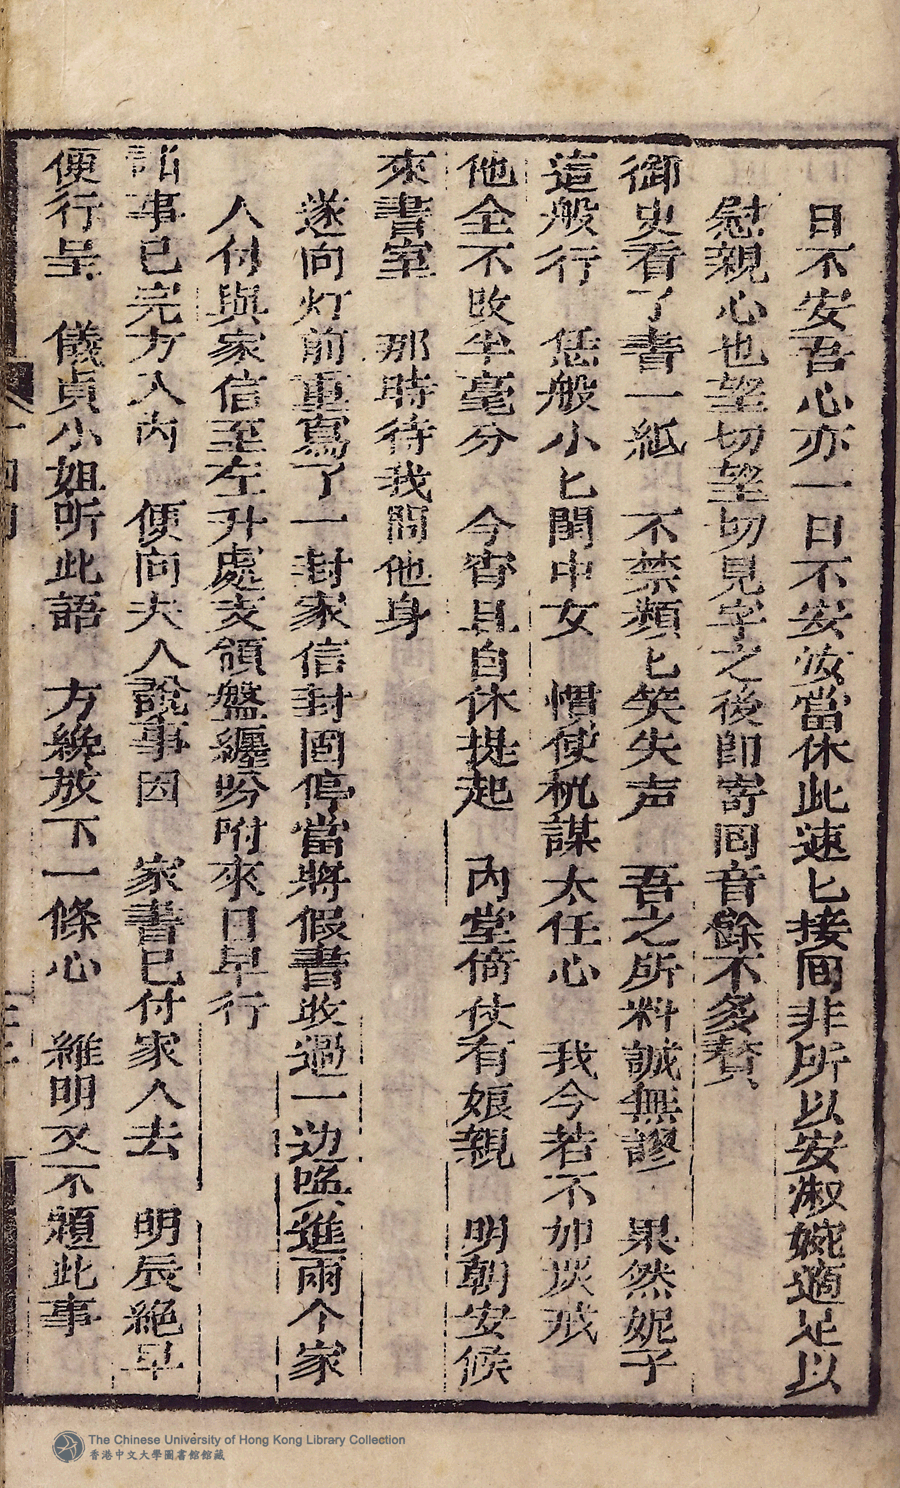 日不安吾心亦一日不安汝當休此速匕接囘非所以安淑婉適足以
慰親心也望切望切見字之後卽寄囘音餘不多贅
御史看了書一紙　不禁頻匕笑失声　吾之所料誠無謬　果然妮子
這般行　恁般小匕閨中女　慣使机謀太任心　我今若不加戒
他全不改半毫分　今宵且自休提起　內堂倚仗有娘親　明朝安候
來書室　那時待我問他身
遂向灯前重寫了一封家信封固停當將假書收過一边喚進兩个家
人付與家信至左升處支領盤纏吩咐來日早行
諸事已完方入內　便向夫人說事因　家書已付家人去　明辰絕早
便行呈　儀貞小姐听此語　方纔放下一條心　維明又不題此事
十四
The Chinese University of Hong Kong Library Collection
香港中文大學圖書館館藏